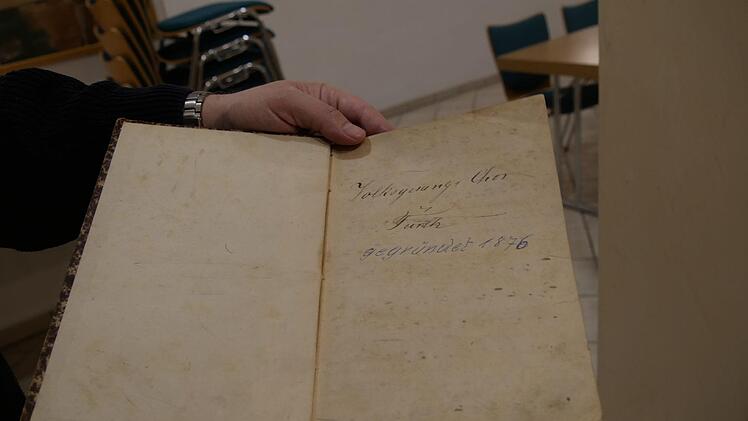 Volksgesangs Chor
Fürth
gegründet 1876